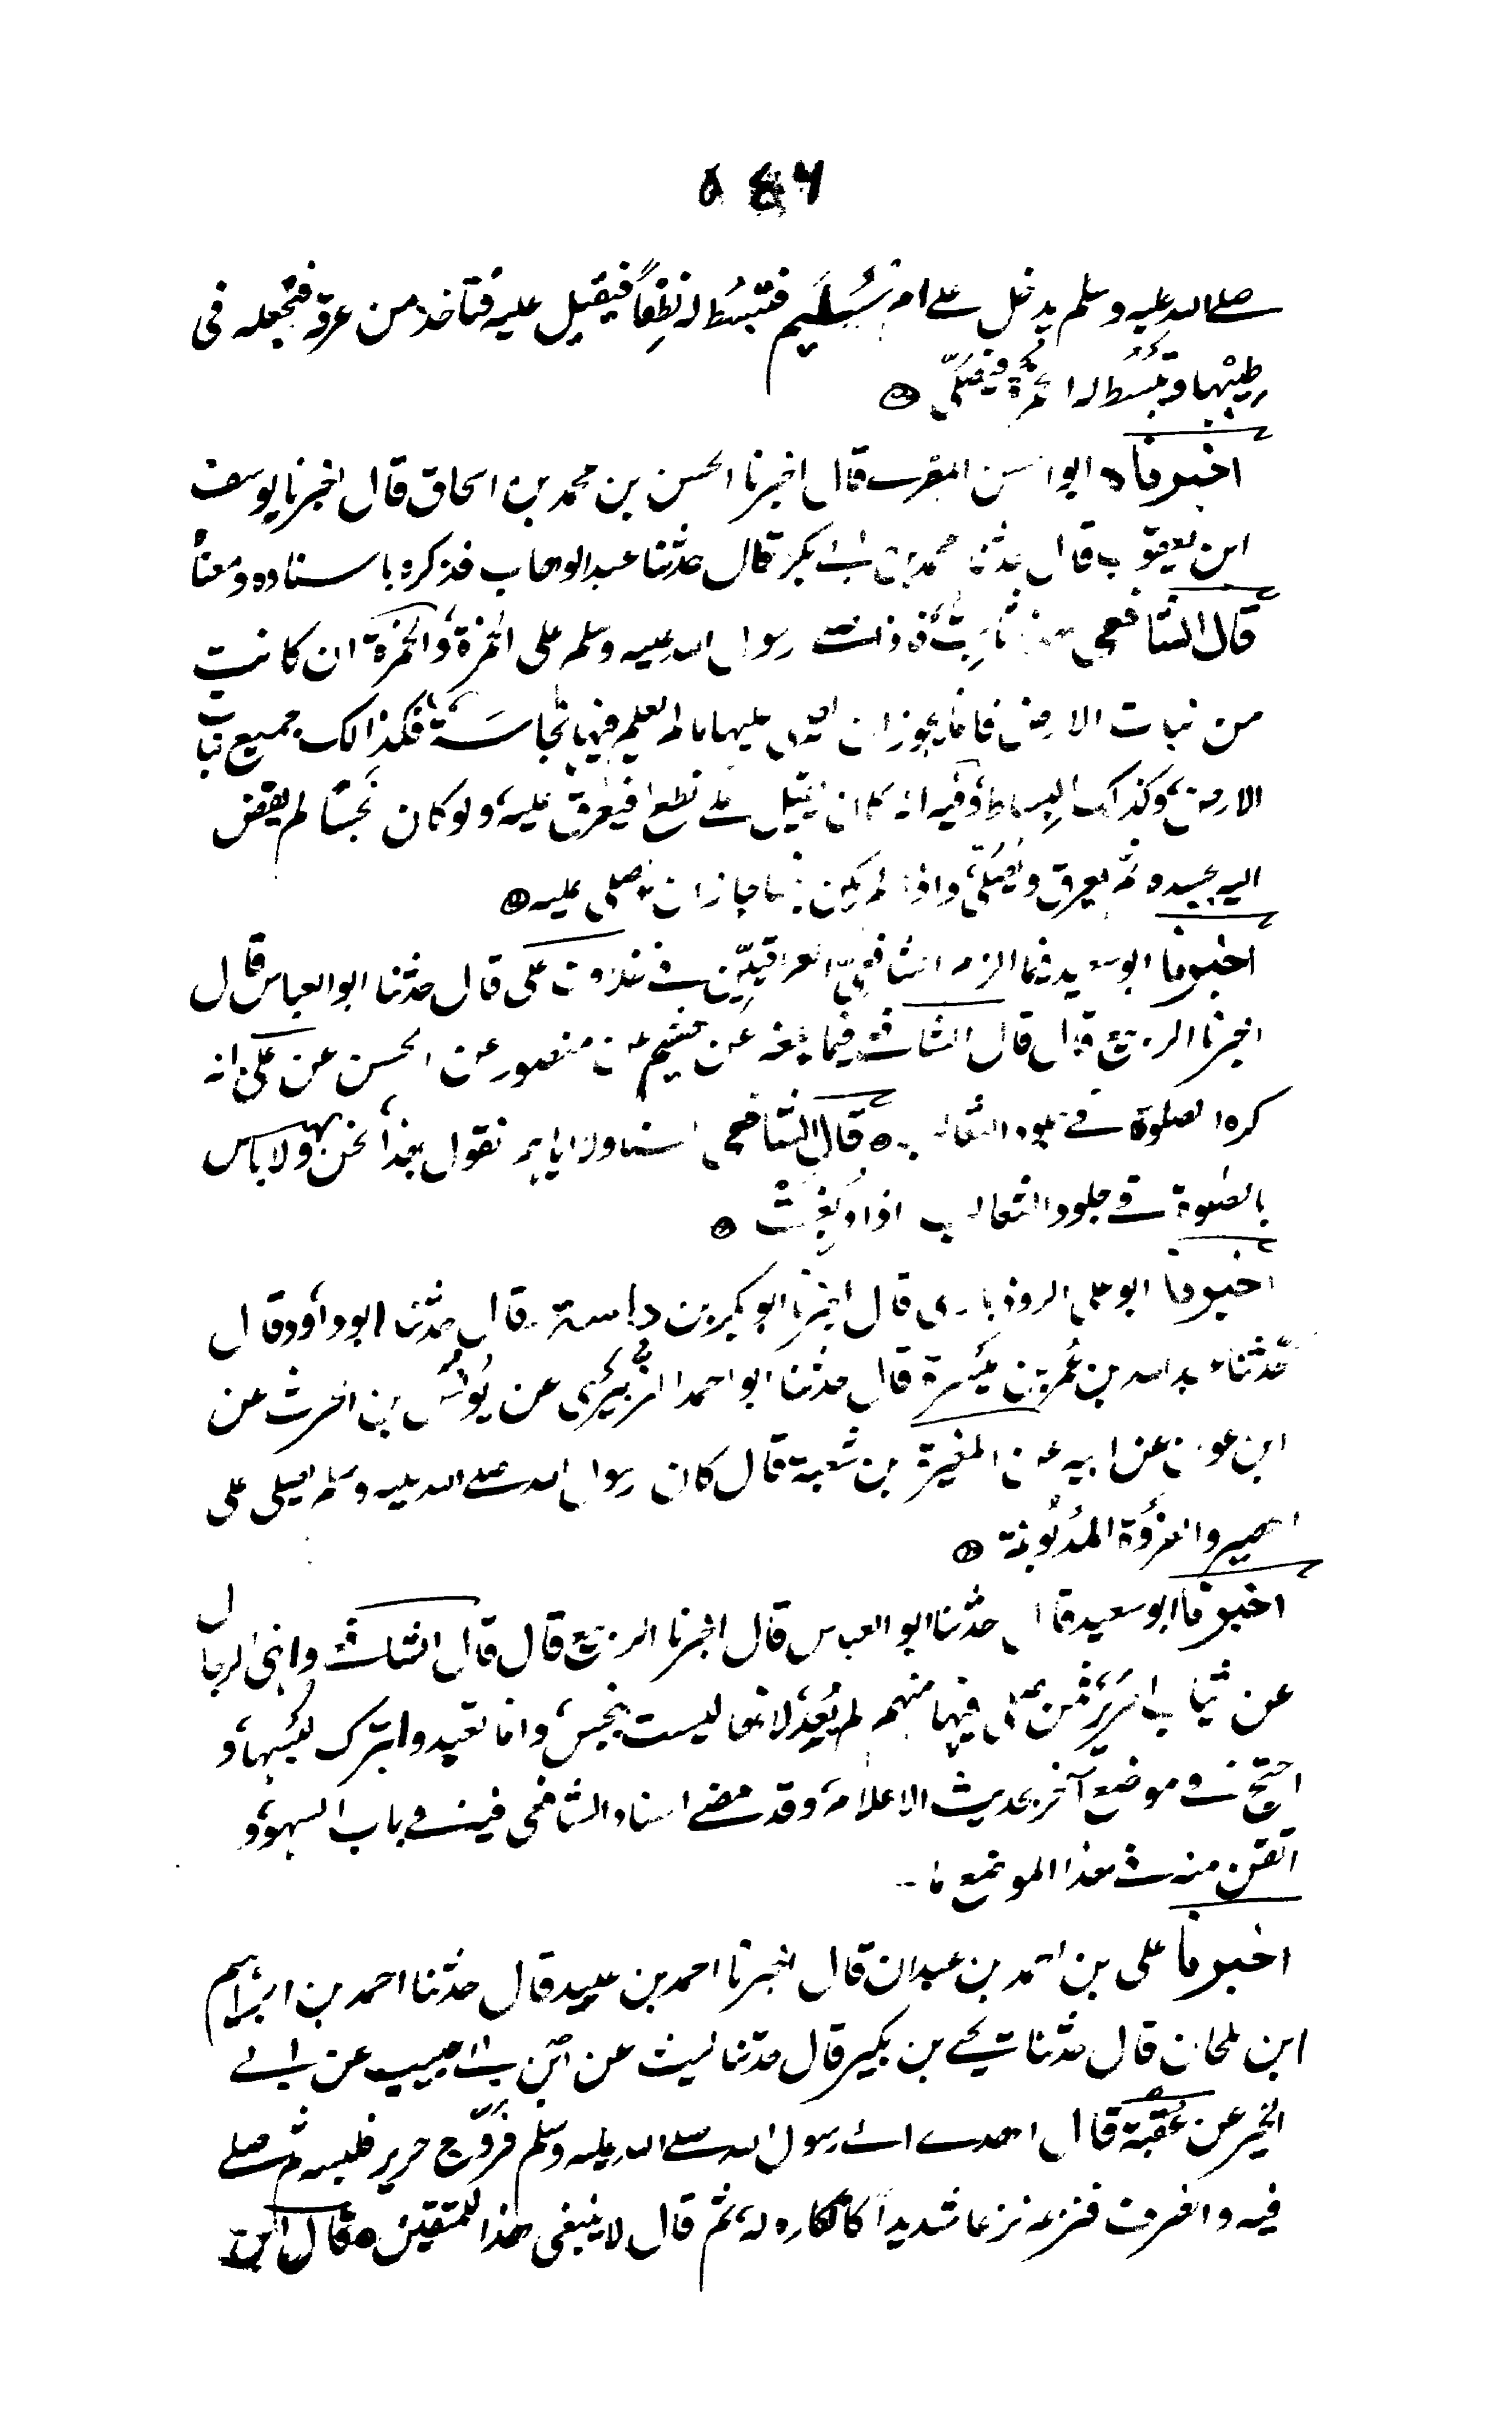 صلى الله عليه وسلم يدخل على ام سُلَيم فتبسُط له نِطَعاً فيقيل عليه فتأخذ من عرقه فتجعله فى
طِيبها وتبسُط له الخُمرة فيصلّى
اخبرناه ابو الحسن المقرى قال اخبرنا الحسن بن محمد بن اسحاق قال اخبرنا يوسف
ابن يعقوب قال حدثنا محمد بن ابى بكر قال حدثنا عبد الوهاب فذكره باسناده ومعناه
قال الشافعى رسول الله عليه وسلم على الخمرة والخمرة ان كانت
من نبات الارض فانما يجوز ان يصلى عليها ما لم يعلم فيها نجاسَة فكذالك جميع نبات
الارض، وكذلك البِساط وفيه انه كان يقيل على نطع فيعرق عليه، ولو كان نجسًا لم يفض
اليه بجسده ثم يعرق ويُصلّى، واذا لم يكن نجسا جاز ان يصلى عليه
اخبرنا ابو سعيد فيما الزم الشافعىّ العراقيّين فى خلاف على قال حدثنا ابو العباس قال
اخبرنا الربيع قال قال الشافعى فيما بلغه عن هشيم عن منصور عن الحسن عن على انه
كره الصلوة فى جلود الثعالب قال الشافعى نقول بهذا نحن ولا باس
بالصلوة فى جلود الثعالب اذا دُبِغتْ
اخبرنا ابو على الروذبارى قال اخبرنا ابو بكر بن داسة قال حدثنا ابو داؤد قال
حدثنا عبيد الله بن عُمر بن مَيسرة قال حدثنا ابو احمد الزُبيرى عن يُونُس بن الحرث عن
ابن عون عن ابيه عن المغيرة بن شعبة قال كان رسول الله صلى الله عليه وسلم يصلى على
الحصير والفرْوة المدبُوغة
اخبرنا ابو سعيد قال حدثنا ابو العباس قال اخبرنا الربيع قال قال الشافعى وانهى الرجال
عن ثياب الحرير، فمن صلى فيها منهم لم يُعِد، لانها ليست بنجس، وانما تعبدوا بترك لُبسها، و
احتج فى موضع آخر بحديث الاعلام، وقد مضى اسناد الشافعى فيه فى باب السهو، و
اتقن منه فى هذا الموضع ما
اخبرنا على بن احمد بن عبدان قال اخبرنا احمد بن عبيد قال حدثنا احمد بن ابراهيم
ابن ملحان قال حدثنا يحيى بن بكير قال حدثنا ليث عن ابن ابى حبيب عن ابى
الخير عن عقبة قال اهدى الى رسول الله صلى الله عليه وسلم فرّوج حرير فلبسه ثم صلى
فيه وانصرف فنزعه نزعا شديداً كالكاره له، ثم قال لا ينبغى هذا للمتقين قال ابن